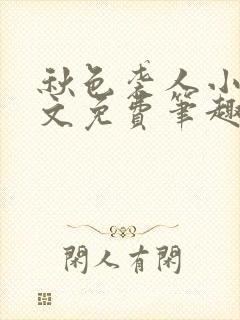 秋色袭人小
文免費筆趣
閑人有閑